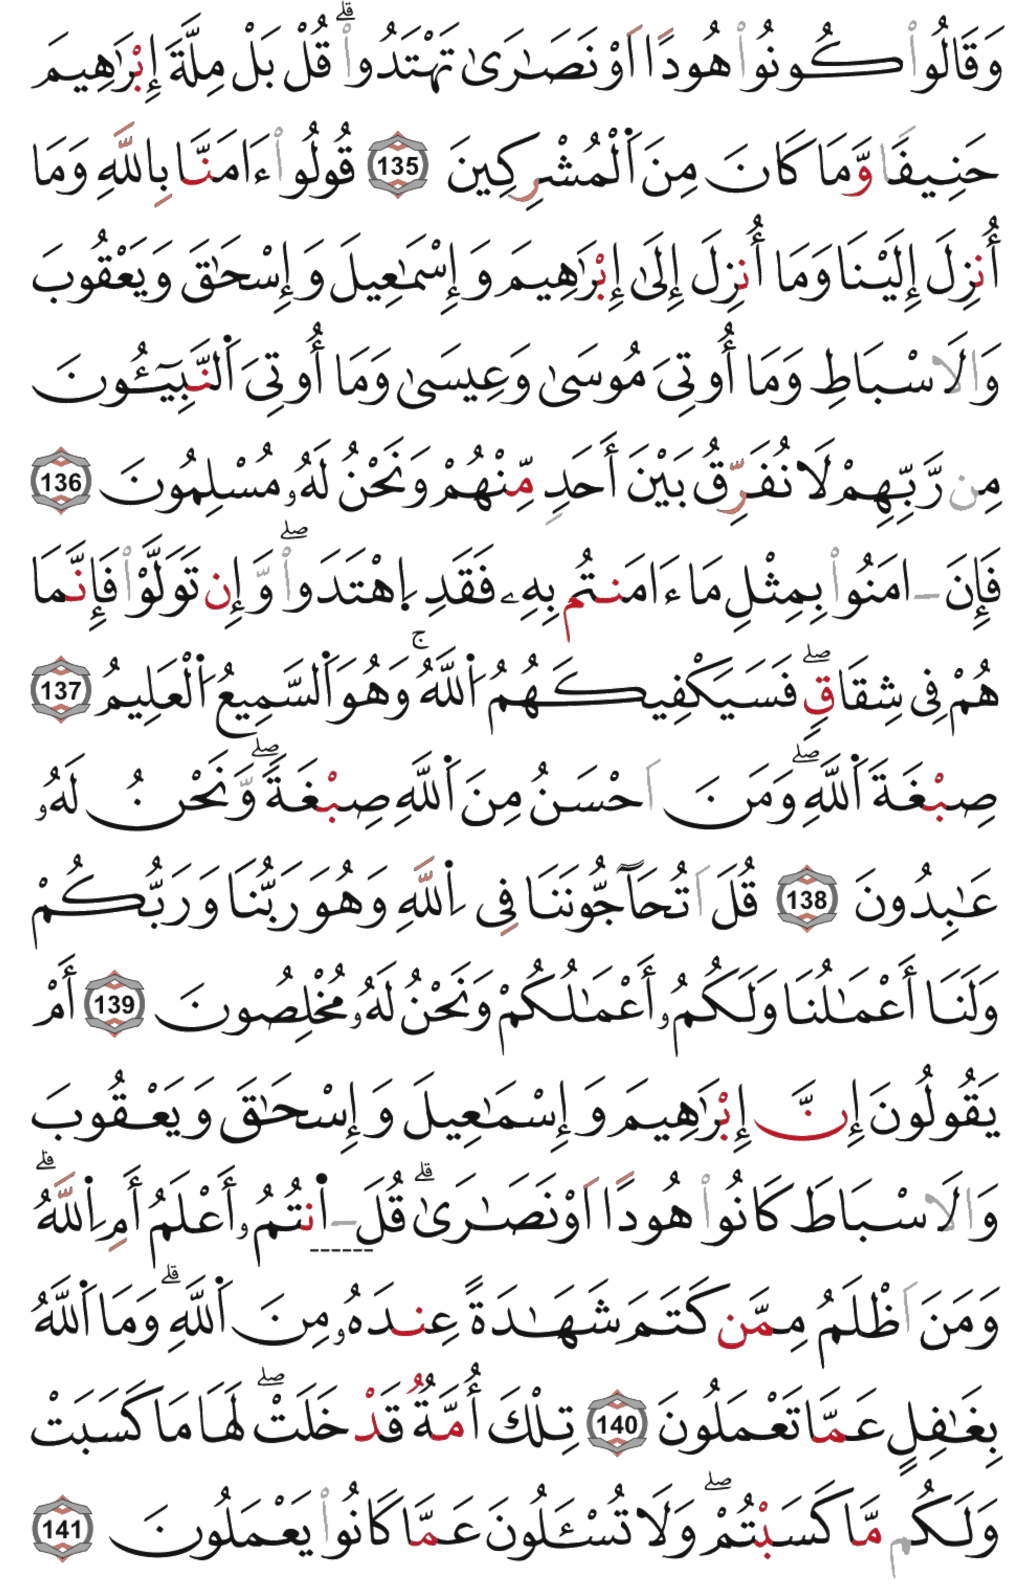 وَقَالُواْ كُونُواْ هُودًا اَوْ نَصَٰرَىٰ تَهْتَدُواْۗ قُلْ بَلْ مِلَّةَ إِبْرَٰهِيمَ
حَنِيفًا وَّمَا كَانَ مِنَ اَ۬لْمُشْرِكِينَ 135 قُولُواْ ءَامَنَّا بِاللَّهِ وَمَا
أُنزِلَ إِلَيْنَا وَمَا أُنزِلَ إِلَىٰ إِبْرَٰهِيمَ وَإِسْمَٰعِيلَ وَإِسْحَٰقَ وَيَعْقُوبَ
وَالَاسْبَاطِ وَمَا أُوتِيَ مُوسَىٰ وَعِيسَىٰ وَمَا أُوتِيَ اَ۬لنَّبِيٓـُٔونَ
مِن رَّبِّهِمْ لَا نُفَرِّقُ بَيْنَ أَحَدٍ مِّنْهُمْ وَنَحْنُ لَهُۥ مُسْلِمُونَ 136
فَإِنَ ـ امَنُواْ بِمِثْلِ مَا ءَامَنتُم بِهِۦ فَقَدِ اِ۪هْتَدَواْۖ وَّإِن تَوَلَّوْاْ فَإِنَّمَا
هُمْ فِي شِقَاقٍۖ فَسَيَكْفِيكَهُمُ اُ۬للَّهُۚ وَهُوَ اَ۬لسَّمِيعُ اُ۬لْعَلِيمُ 137
صِبْغَةَ اَ۬للَّهِۖ وَمَنَ اَحْسَنُ مِنَ اَ۬للَّهِ صِبْغَةًۖ وَّنَحْنُ لَهُۥ
عَٰبِدُونَ 138 قُلَ اَتُحَآجُّونَنَا فِي اِ۬للَّهِ وَهُوَ رَبُّنَا وَرَبُّكُمْ
وَلَنَا أَعْمَٰلُنَا وَلَكُمُۥ أَعْمَٰلُكُمْ وَنَحْنُ لَهُۥ مُخْلِصُونَ 139 أَمْ
يَقُولُونَ إِنَّ إِبْرَٰهِيمَ وَإِسْمَٰعِيلَ وَإِسْحَٰقَ وَيَعْقُوبَ
وَالَاسْبَاطَ كَانُواْ هُودًا اَوْ نَصَٰرَىٰۗ قُلَ ـ اٰ۬نتُمُۥ أَعْلَمُ أَمِ اِ۬للَّهُۗ
وَمَنَ اَظْلَمُ مِمَّن كَتَمَ شَهَٰدَةً عِندَهُۥ مِنَ اَ۬للَّهِۗ وَمَا اَ۬للَّهُ
بِغَٰفِلٍ عَمَّا تَعْمَلُونَ 140 تِلْكَ أُمَّةٌ قَدْ خَلَتْۖ لَهَا مَا كَسَبَتْ
وَلَكُم مَّا كَسَبْتُمْۖ وَلَا تُسْـَٔلُونَ عَمَّا كَانُواْ يَعْمَلُونَ 141